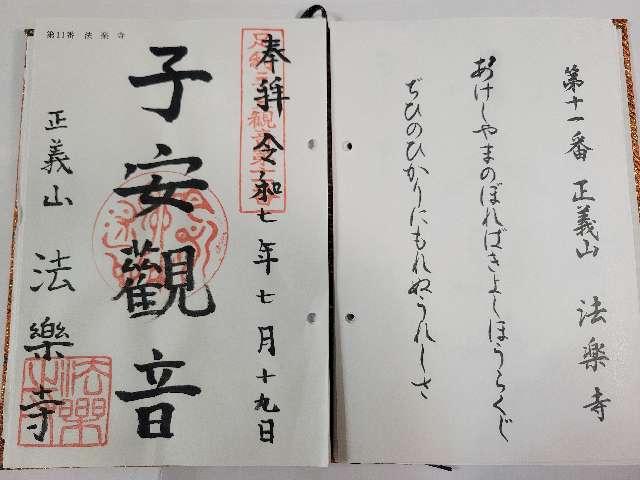 第十一番 正義山 法楽寺
あけしやまのぼればきよしほうらくじ
ぢひのひかりにもれぬうれしさ
第11番 法楽寺
奉拜 令和七年七月十九日
子安觀音
正義山 法樂寺